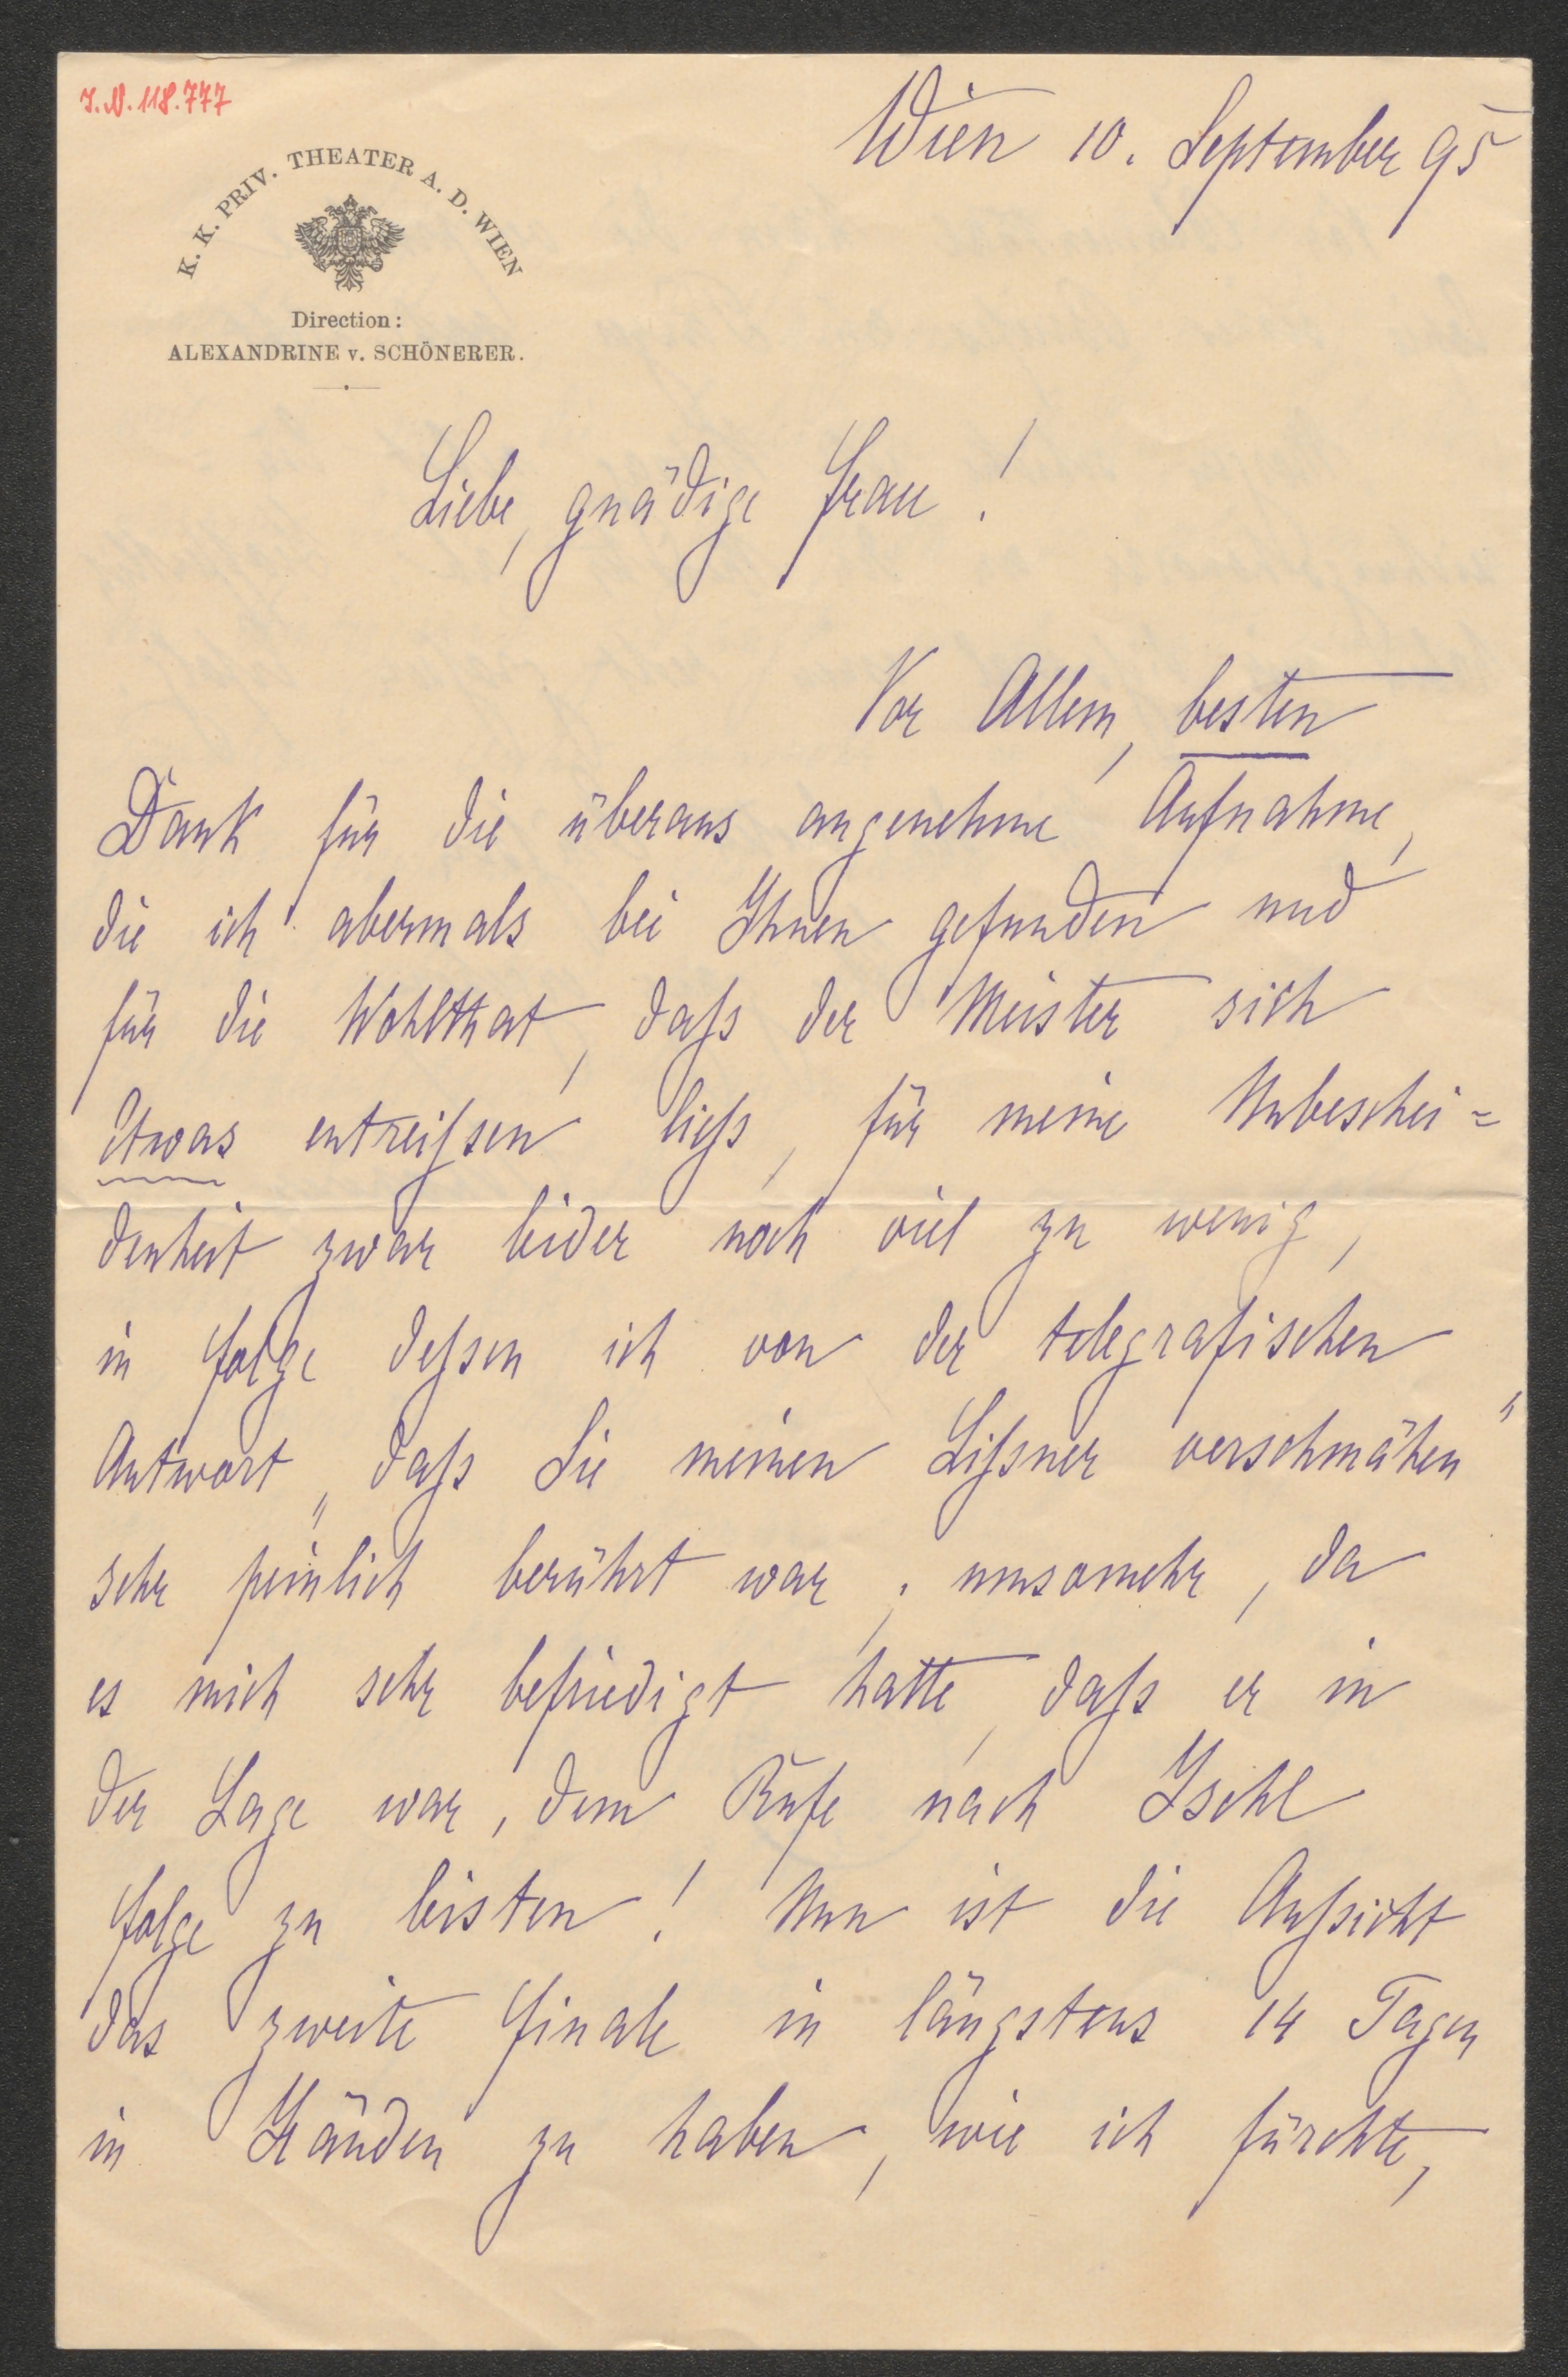 J. N. 118.777
Wien 10. September 95
K. K. PRIV. THEATER A. D. WIEN
Direction:
ALEXANDRINE v. SCHÖNERER.
Liebe, gnädige Frau!
Vor Allem, besten
Dank für die überaus angenehme Aufnahme,
die ich abermals bei Ihnen gefunden und
für die Wohlthat, daß der Meister sich
Etwas entreißen ließ, für meine Unbeschei=
denheit zwar leider noch viel zu wenig,
in Folge deßen ich von der telegrafischen
Antwort „daß Sie meinen Lißner verschmähen"
sehr peinlich berührt war; umsomehr, da
es mich sehr befriedigt hatte, daß er in
der Lage war, dem Rufe nach Ischl
Folge zu leisten! Nun ist die Aussicht
das zweite Finale in längstens 14 Tagen
in Händen zu haben, wie ich fürchte,